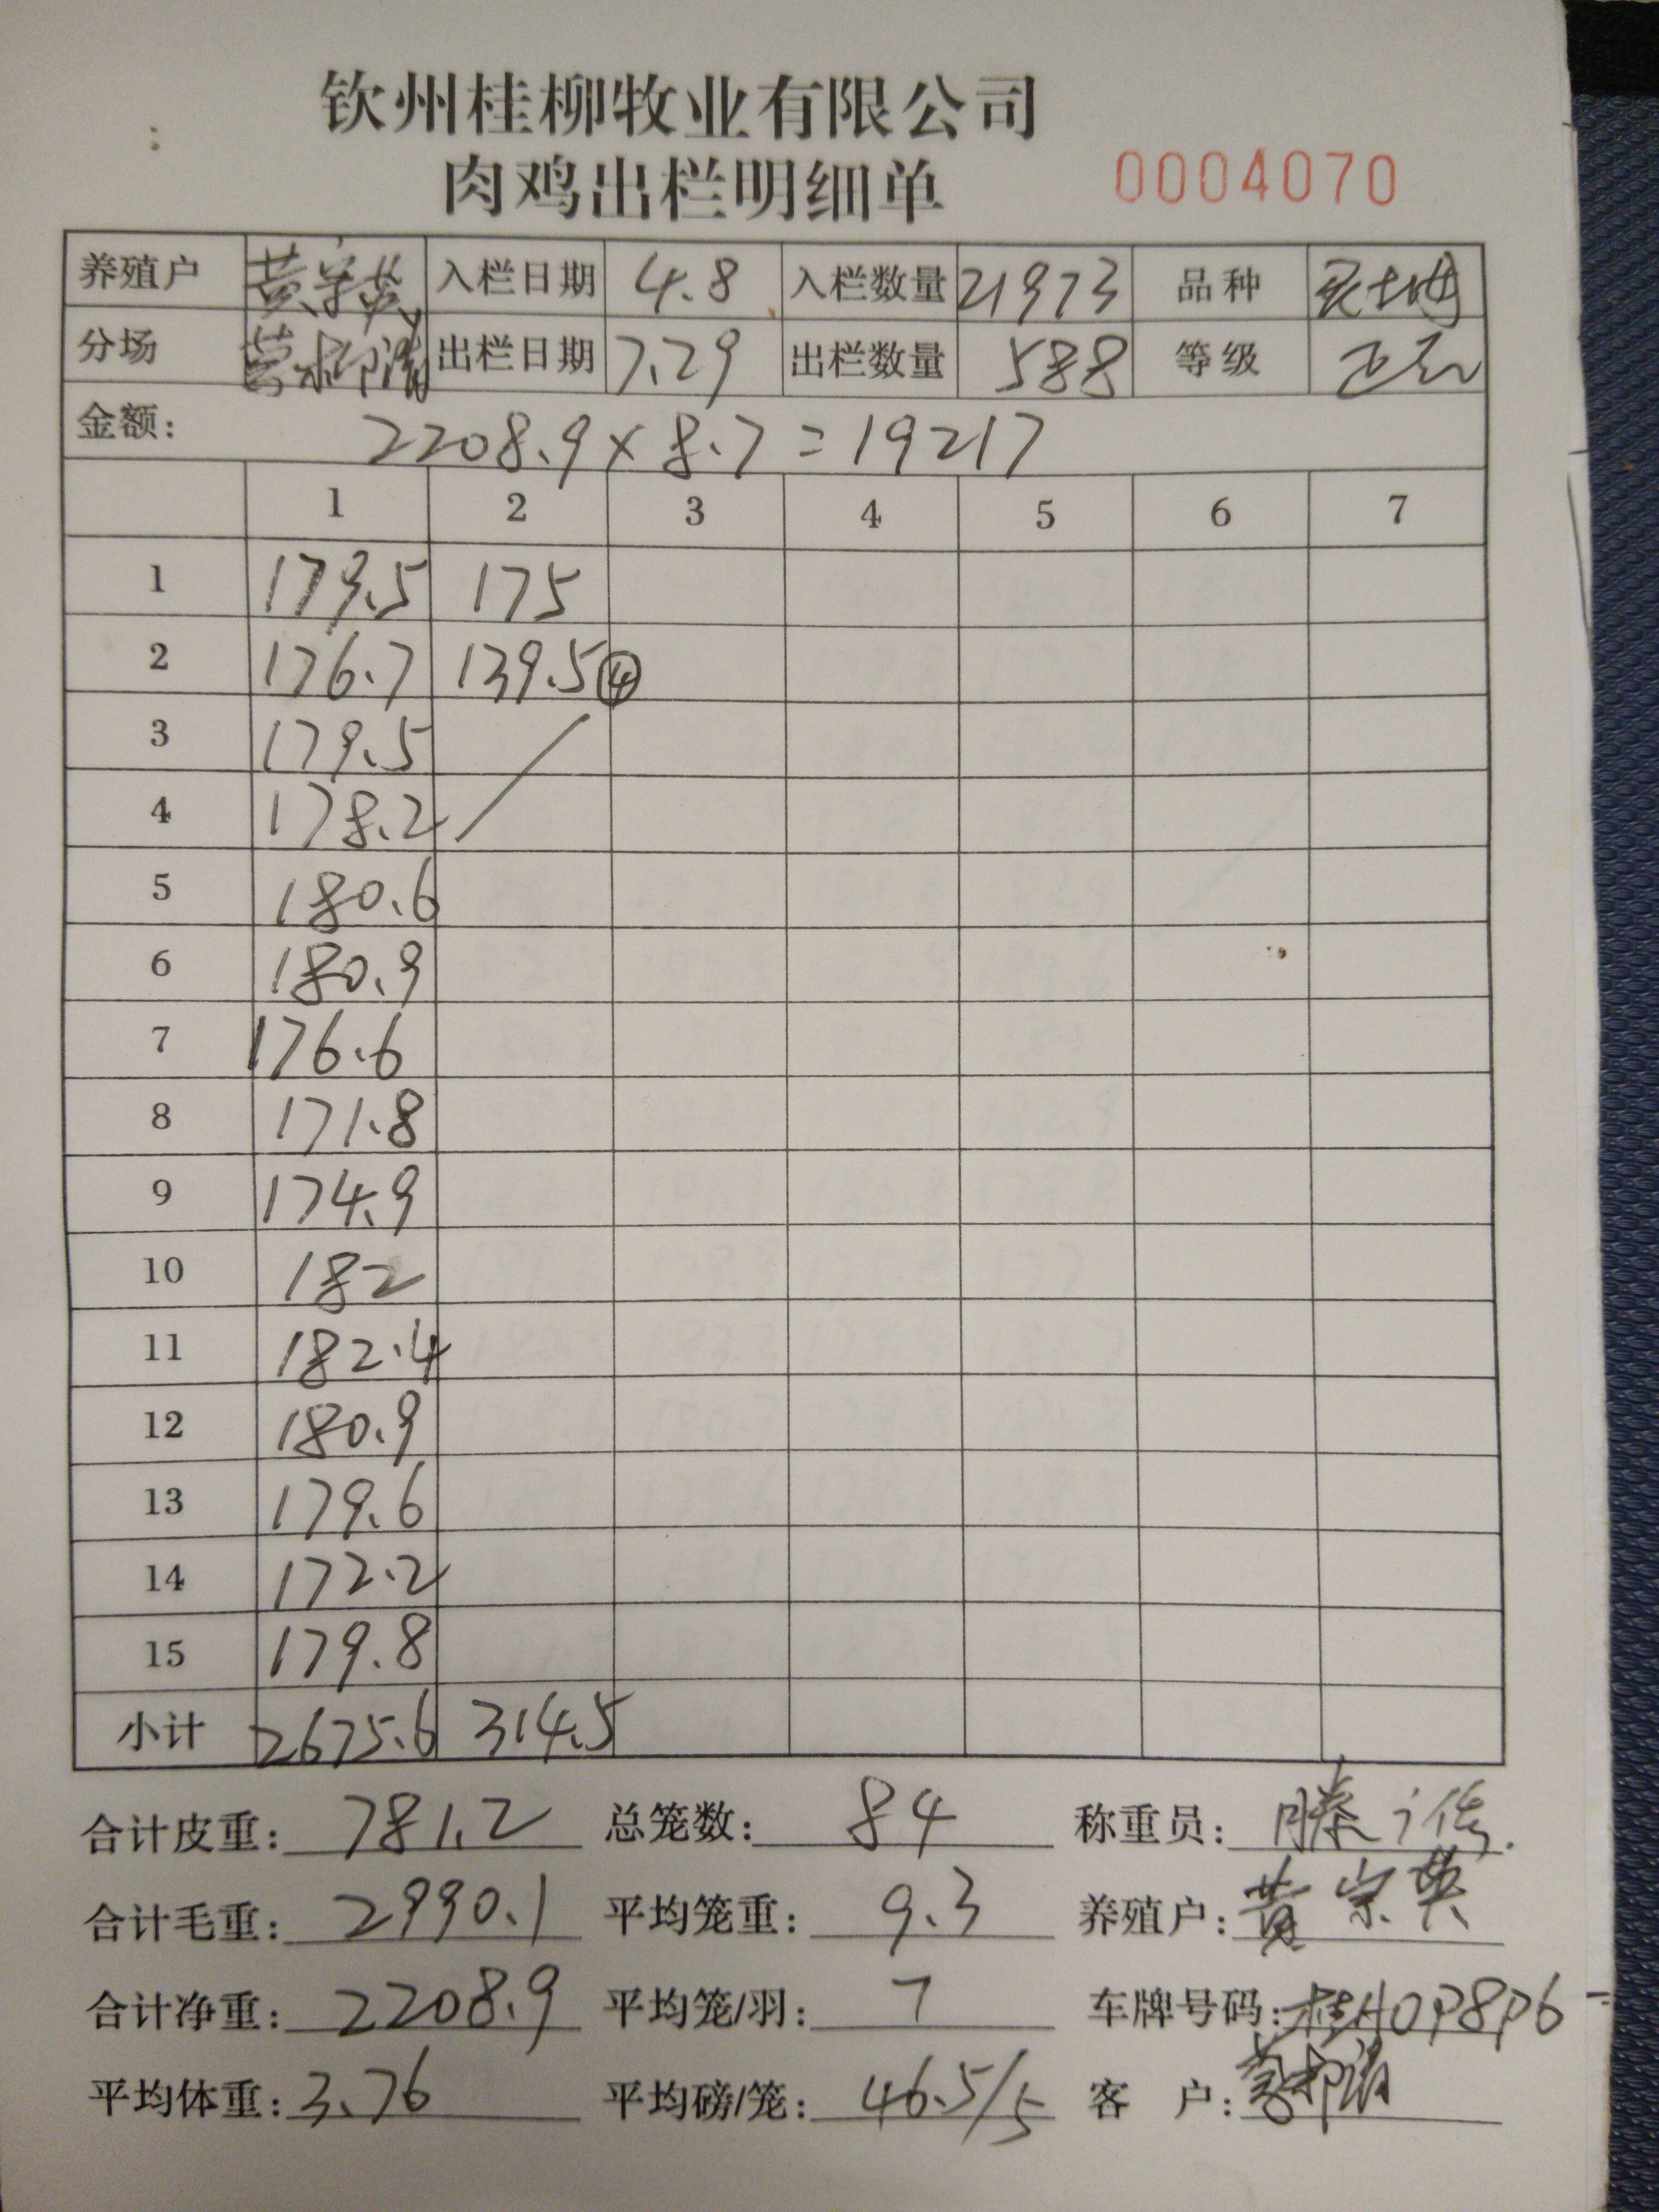 钦州桂柳牧业有限公司
肉鸡出栏明细单 0004070
养殖户 黄宗英 入栏日期 4.8 入栏数量 21973 品种
分场 出栏日期 7.29 出栏数量 588 等级 正品
金额: 2208.9×8.7=19217
1 2 3 4 5 6 7
1 179.5 175
2 176.7 139.5 ④
3 179.5
4 178.2
5 180.6
6 180.9
7 176.6
8 171.8
9 174.9
10 182
11 182.4
12 180.9
13 179.6
14 172.2
15 179.8
小计 2675.6 314.5
合计皮重: 781.2 总笼数: 84 称重员: 滕
合计毛重: 2990.1 平均笼重: 9.3 养殖户: 黄宗英
合计净重: 2208.9 平均笼/羽: 7 车牌号码: 桂H0P8P6
平均体重: 3.76 平均磅/笼: 46.5/5 客户: